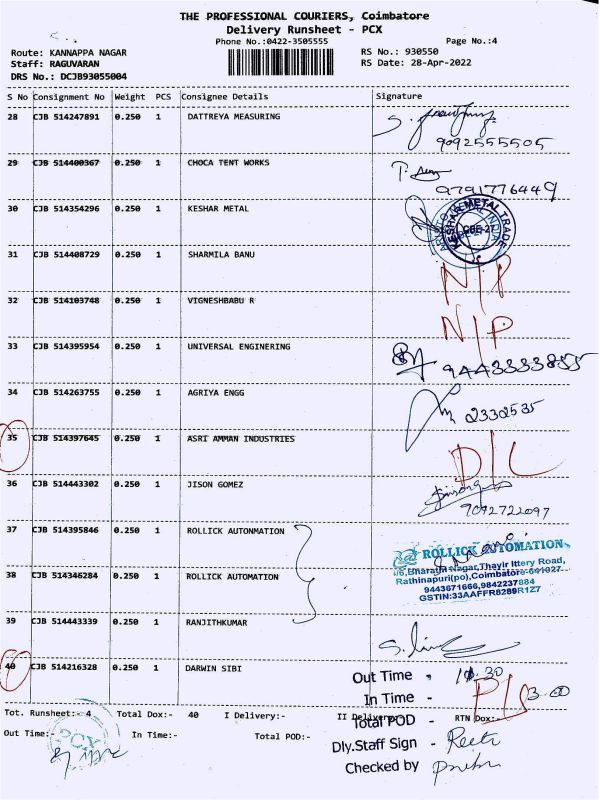 THE PROFESSIONAL COURIERS, Coimbatore
Delivery Runsheet - PCX
Phone No.:0422-3505555 Page No.:4
Route: KANNAPPA NAGAR RS No.: 930550
Staff: RAGUVARAN RS Date: 28-Apr-2022
DRS No.: DCJB93055004
S No Consignment No Weight PCS Consignee Details Signature
28 CJB 514247891 0.250 1 DATTREYA MEASURING
9092555505
29 CJB 514400367 0.250 1 CHOCA TENT WORKS
9791776449
30 CJB 514354296 0.250 1 KESHAR METAL
KESHAR METAL TRADE
CBE-27
31 CJB 514408729 0.250 1 SHARMILA BANU N/P
32 CJB 514103748 0.250 1 VIGNESHBABU R N/P
33 CJB 514395954 0.250 1 UNIVERSAL ENGINERING 9443333855
34 CJB 514263755 0.250 1 AGRIYA ENGG 2332535
35 CJB 514397645 0.250 1 ASRI AMMAN INDUSTRIES D/L
36 CJB 514443302 0.250 1 JISON GOMEZ
9042722097
37 CJB 514395846 0.250 1 ROLLICK AUTONMATION
ROLLICK AUTOMATION
1/6,Bharathi Nagar,Thayir Ittery Road,
38 CJB 514346284 0.250 1 ROLLICK AUTOMATION
Rathinapuri(po),Coimbatore-641027
9443671666,9842237884
GSTIN:33AAFFR8289R1Z7
39 CJB 514443339 0.250 1 RANJITHKUMAR
40 CJB 514216328 0.250 1 DARWIN SIBI
Out Time - 10.30
In Time - 3.00
Tot. Runsheet:- 4 Total Dox:- 40 I Delivery:- II Delivery:- RTN Dox:-
Total POD -
Out Time:- In Time:- Total POD:-
PCX
Dly.Staff Sign -
Checked by